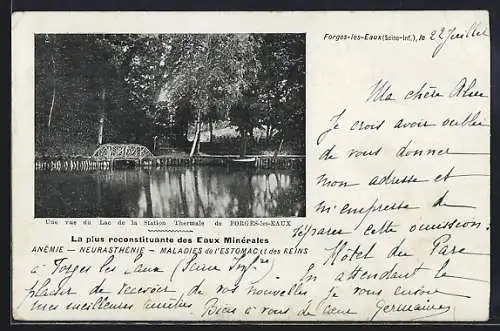 Forges-les-Eaux (Seine-Inf.), le 22 Juillet
Ma chère
Je crois avoir oublié
de vous donner
mon adresse et
m'empresse de
réparer cette omission.
Une vue du Lac de la Station Thermale de FORGES-les-EAUX
La plus reconstituante des Eaux Minérales
ANÉMIE — NEURASTHÉNIE — MALADIES de l'ESTOMAC et des REINS
Hôtel du Parc
à Forges les Eaux (Seine Infre) En attendant le
plaisir de recevoir de vos nouvelles je vous envoie
mes meilleures amitiés. Bien à vous de cœur Germaine